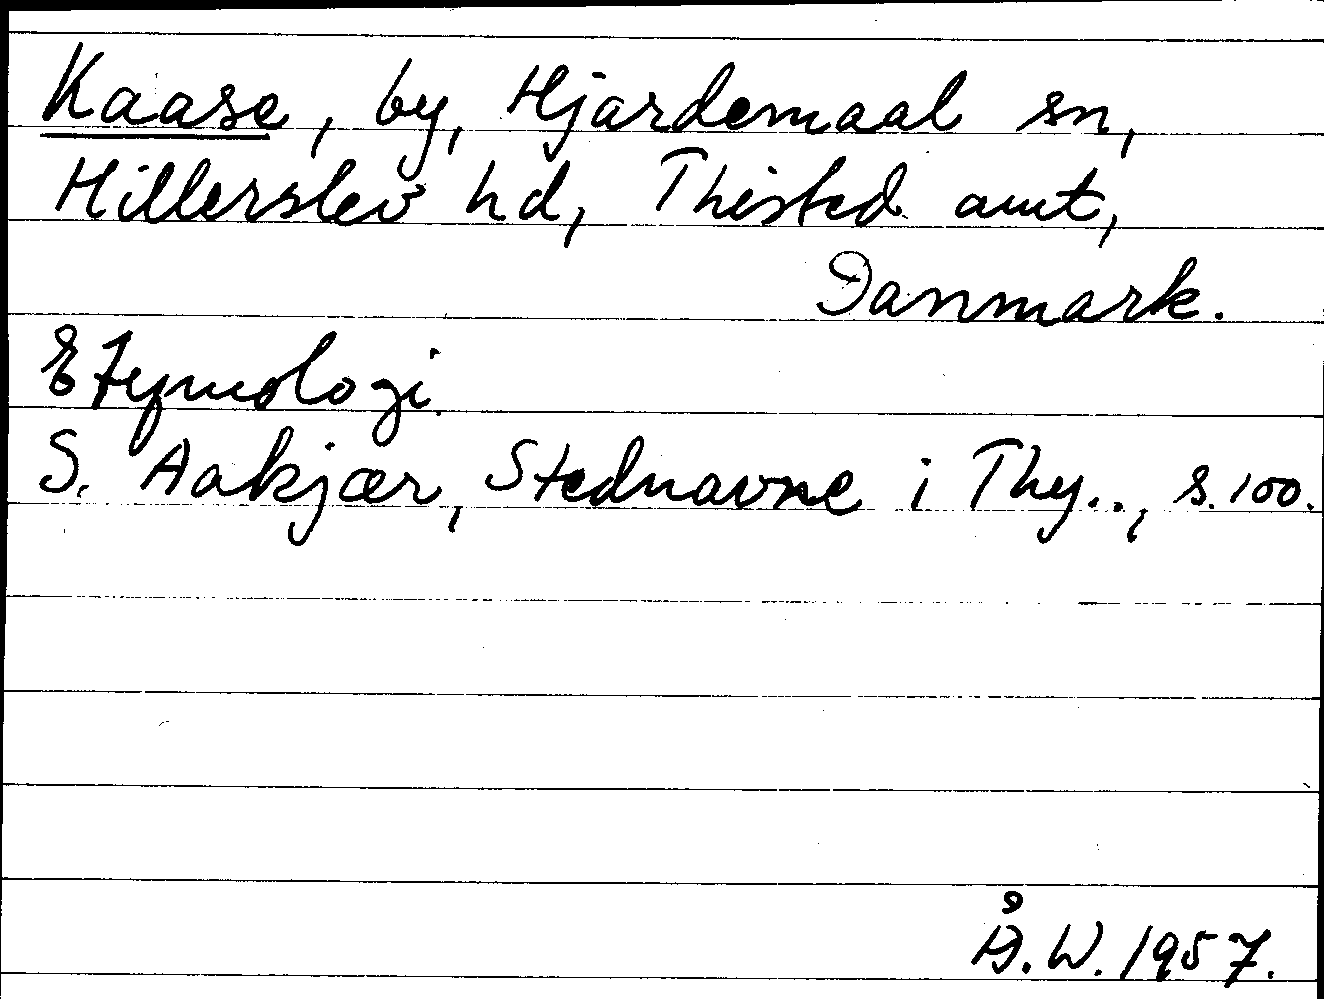 Kaase, by, Hjardemaal sn,
Hillerslev hd, Thisted amt,
Danmark.
Etymologi.
S. Aakjær, Stednavne i Thy.., s. 100.
Å.W. 1957.